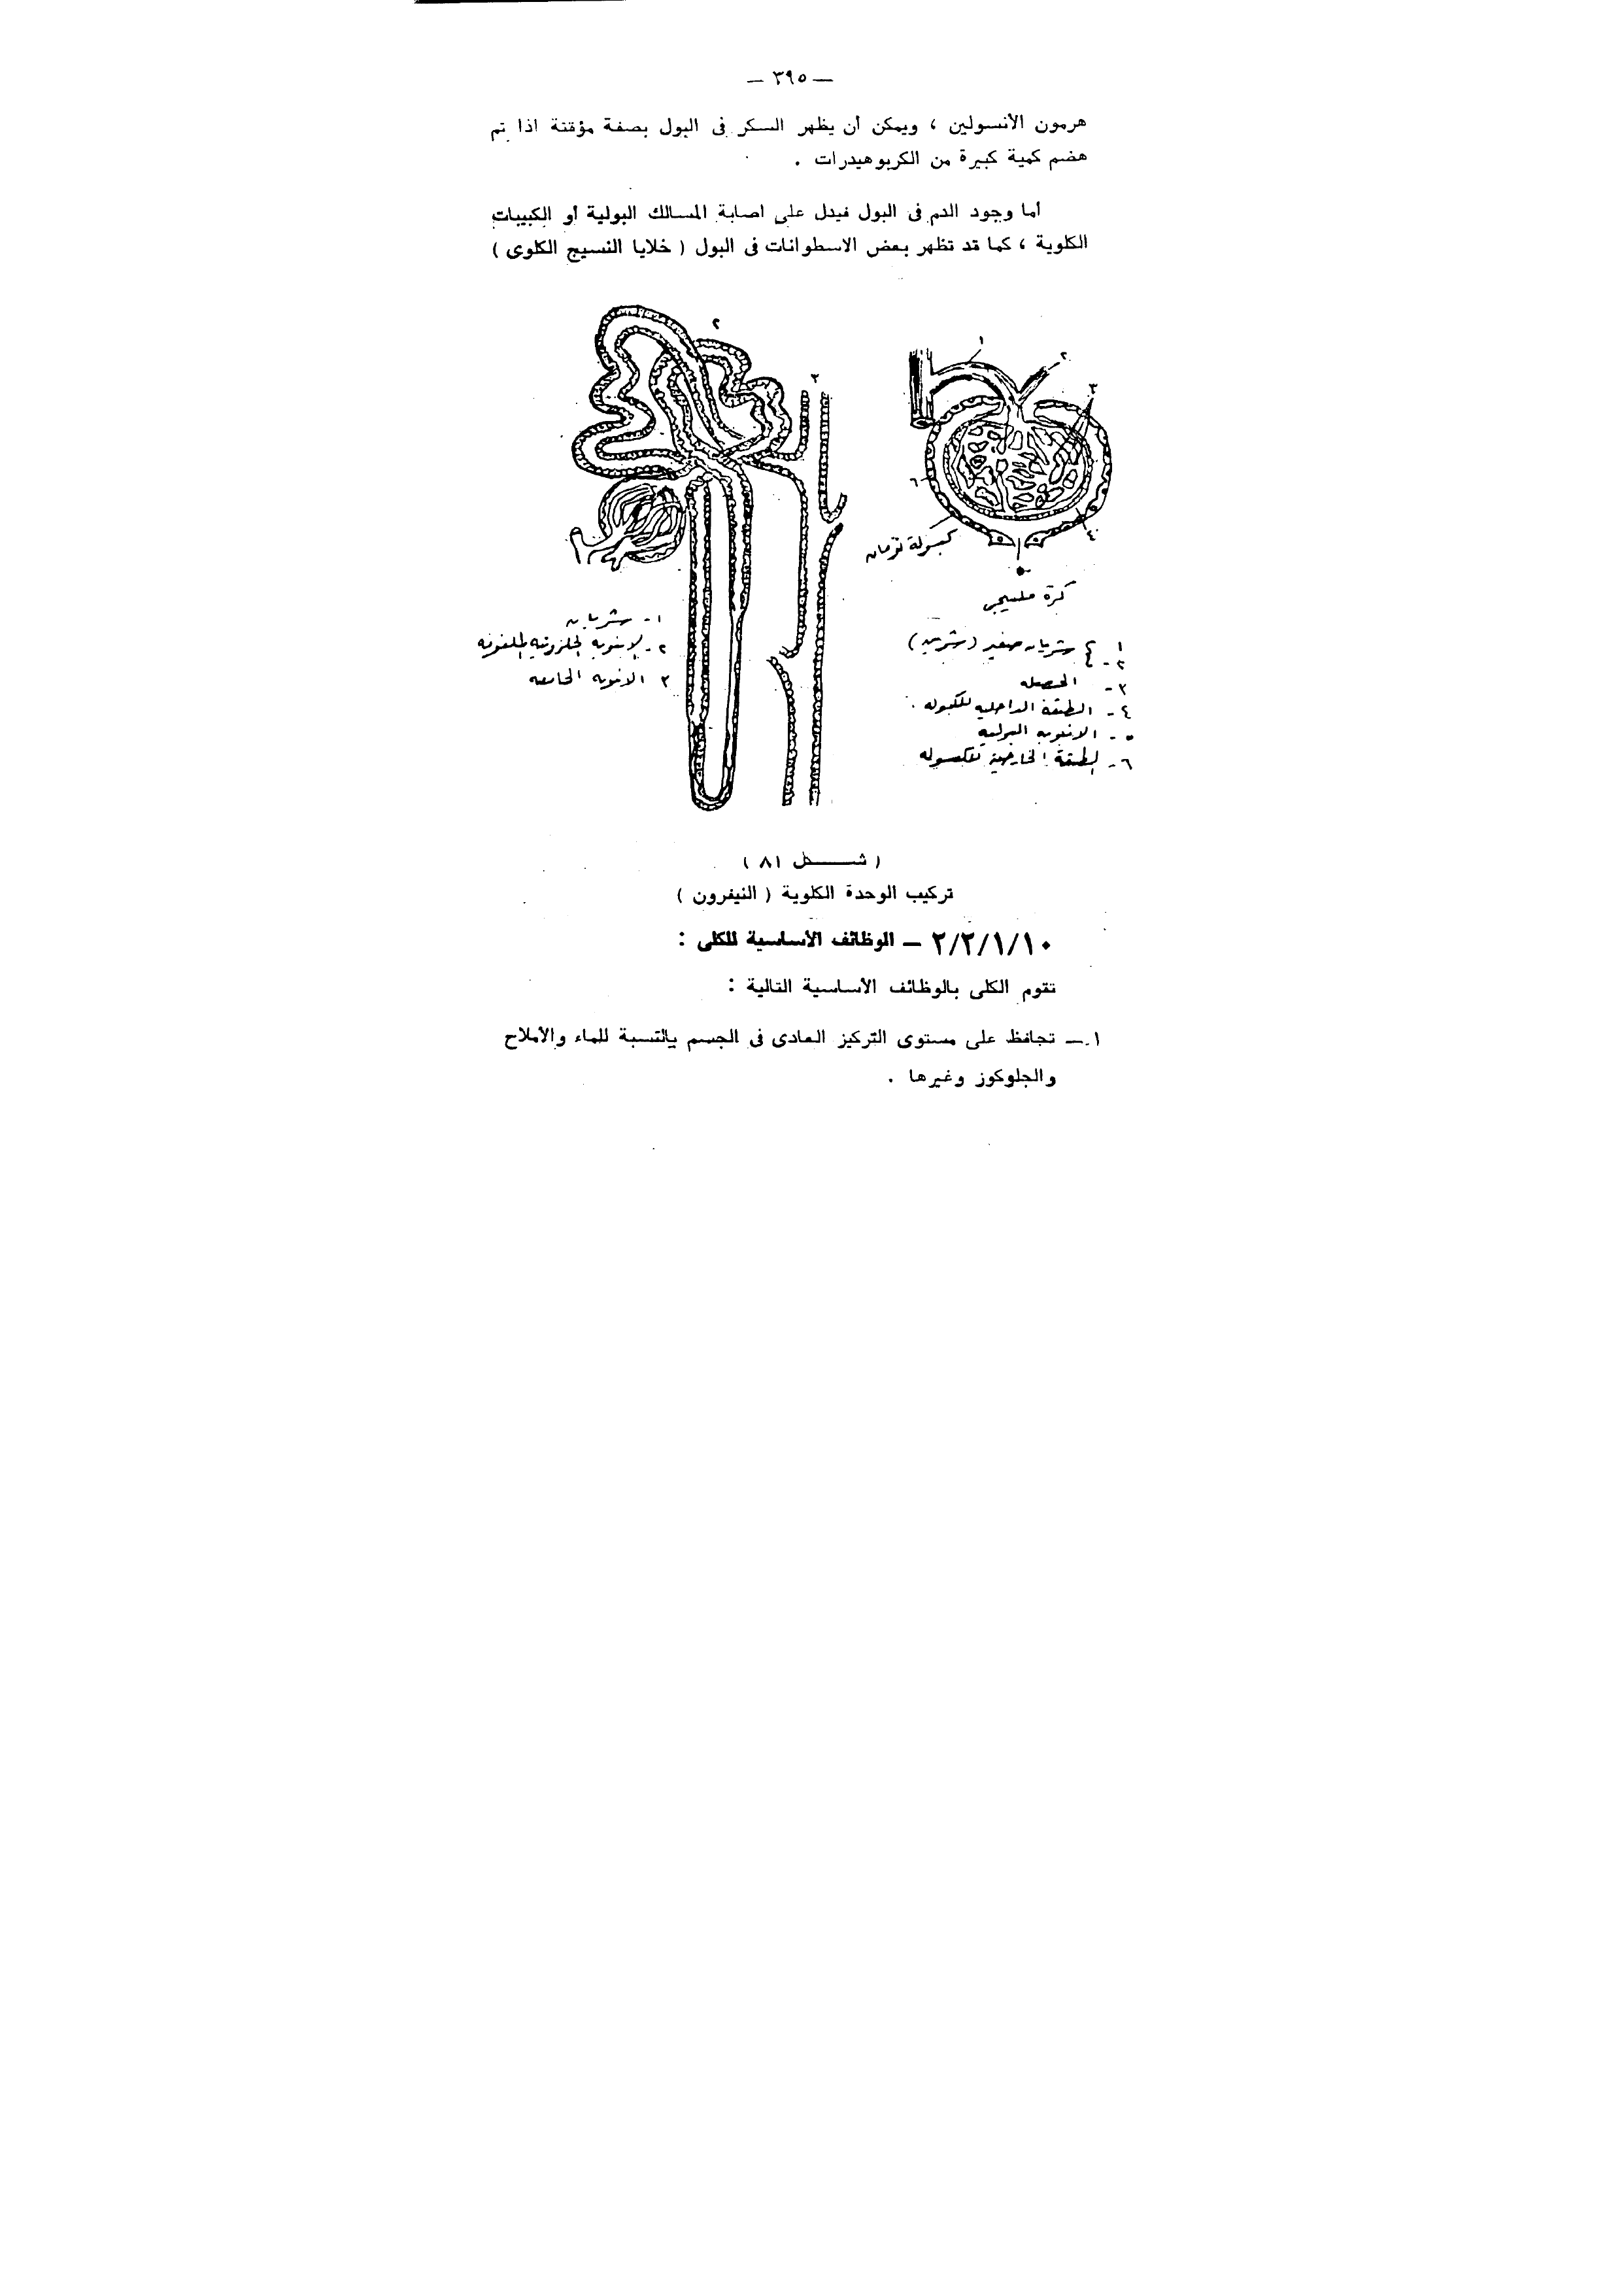 — ٣٩٥ —
هرمون الأنسولين ، ويمكن أن يظهر السكر فى البول بصفة مؤقتة اذا تم
هضم كمية كبيرة من الكربوهيدرات .
أما وجود الدم فى البول فيدل على اصابة المسالك البولية أو الكبيبات
الكلوية ، كما قد تظهر بعض الاسطوانات فى البول ( خلايا النسيج الكلوى )
١
٢
٣
٤
٥
٦
٢
٣
كبسولة بومان
كرة ملبيجى
١
٢ - شريان صغير (شريين)
٣ -
٤ - الطبقة الداخلية للكبسولة .
٥ - الانبوبة البولية
٦ - الطبقة الخارجية للكبسولة
١ - شريان
٢ - الانبوبة الحلزونية الملفوفة
٣ الانبوبة الجامعة
( شــــكل ٨١ )
تركيب الوحدة الكلوية ( النيفرون )
٢/٢/١/١٠ — الوظائف الأساسية للكلى :
تقوم الكلى بالوظائف الأساسية التالية :
١ — تحافظ على مستوى التركيز العادى فى الجسم بالنسبة للماء والأملاح
والجلوكوز وغيرها .